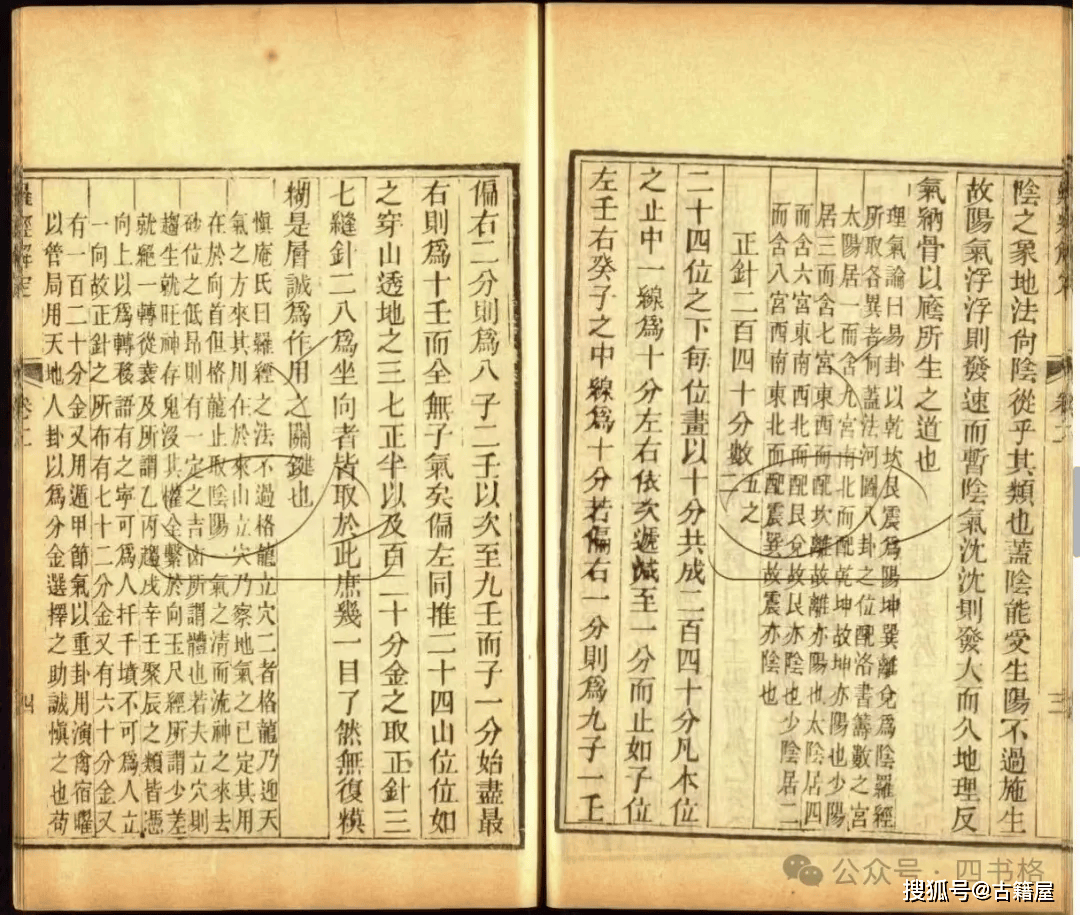 陰之象地法尙陰從乎其類也蓋陰能受生陽不過施生
故陽氣浮浮則發速而暫陰氣沈沈則發大而久地理反
氣納骨以廕所生之道也
理氣論曰易卦以乾坎艮震爲陽坤巽離兌爲陰羅經
所取各異者何蓋法河圖八卦之位配洛書籌數之宮
太陽居一而含九宮南北而配乾坤故坤亦陽也少陽
居三而含七宮東西而配坎離故離亦陽也太陰居四
而含六宮東南西北而配艮兌故艮亦陰也少陰居二
而含八宮西南東北而配震巽故震亦陰也
正針二百四十分數二五之
二十四位之下每位畫以十分共成二百四十分凡本位
之止中一線爲十分左右依次遞減至一分而止如子位
左壬右癸子之中線爲十分若偏右一分則爲九子一壬
偏右二分則爲八子二壬以次至九壬而子一分始盡最
右則爲十壬而全無子氣矣偏左同推二十四山位位如
之穿山透地之三七正半以及百二十分金之取正針三
七縫針二八爲坐向者皆取於此庶幾一目了然無復模
糊是層誠爲作用之關鍵也
愼庵氏曰羅經之法不過格龍立穴二者格龍乃迎天
氣之方來其用在於來山立穴乃察地氣之已定其用
在於向首但格龍止取陰陽一氣之清而流神之來去
砂位之低昂則有一定之吉凶所謂體也若夫立穴則
趨生就旺神存鬼沒其權全繫於向玉尺經所謂少差
就縆一轉從衰及所謂乙丙趨戌辛壬聚辰之類皆憑
向上以爲轉移語有之寧可爲人扦千墳不可爲人立
一向故正針之所布有七十二分金又有六十分金又
有一百二十分金又用遁甲節氣以重卦用演禽宿曜
以管局用天地人卦以爲分金選擇之助誠愼之也苟
羅經解定
卷二
四
三
公众号·四书格
搜狐号@古籍屋